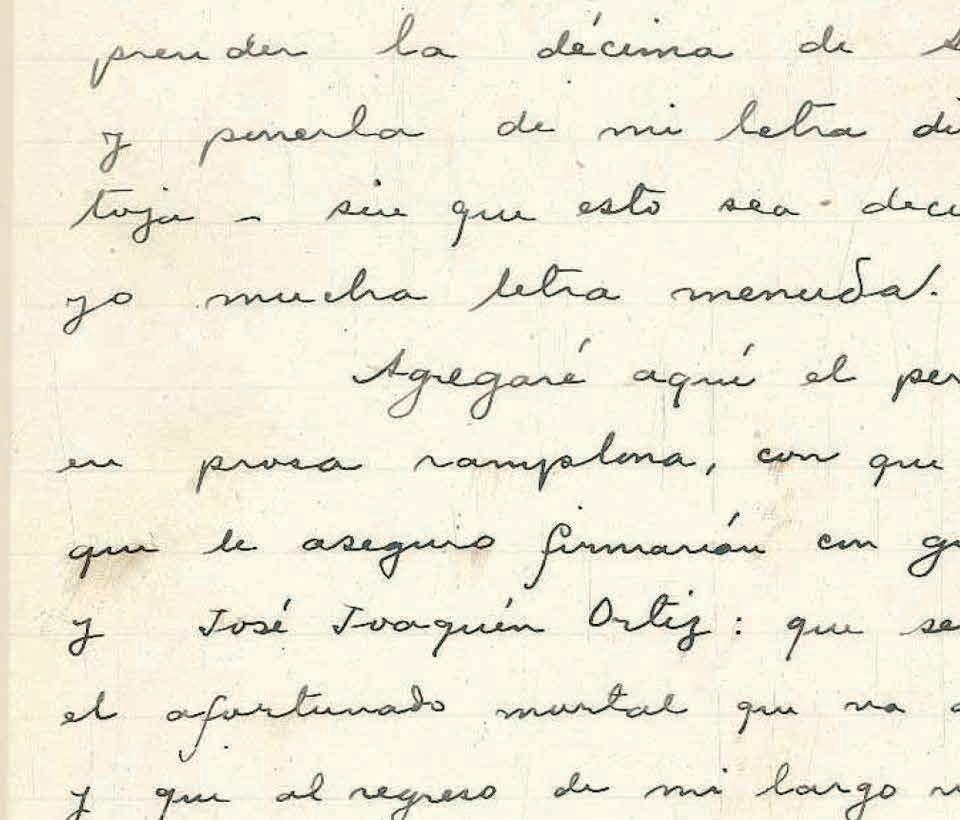 prender la décima de
y ponerla de mi letra
toja - sin que esto sea
yo mucha letra menuda!.
Agregaré aquí el
en prosa ramplona, con que
que le aseguro firmarían con
y José Joaquín Ortiz: que
el afortunado mortal que va
y que al regreso de mi largo